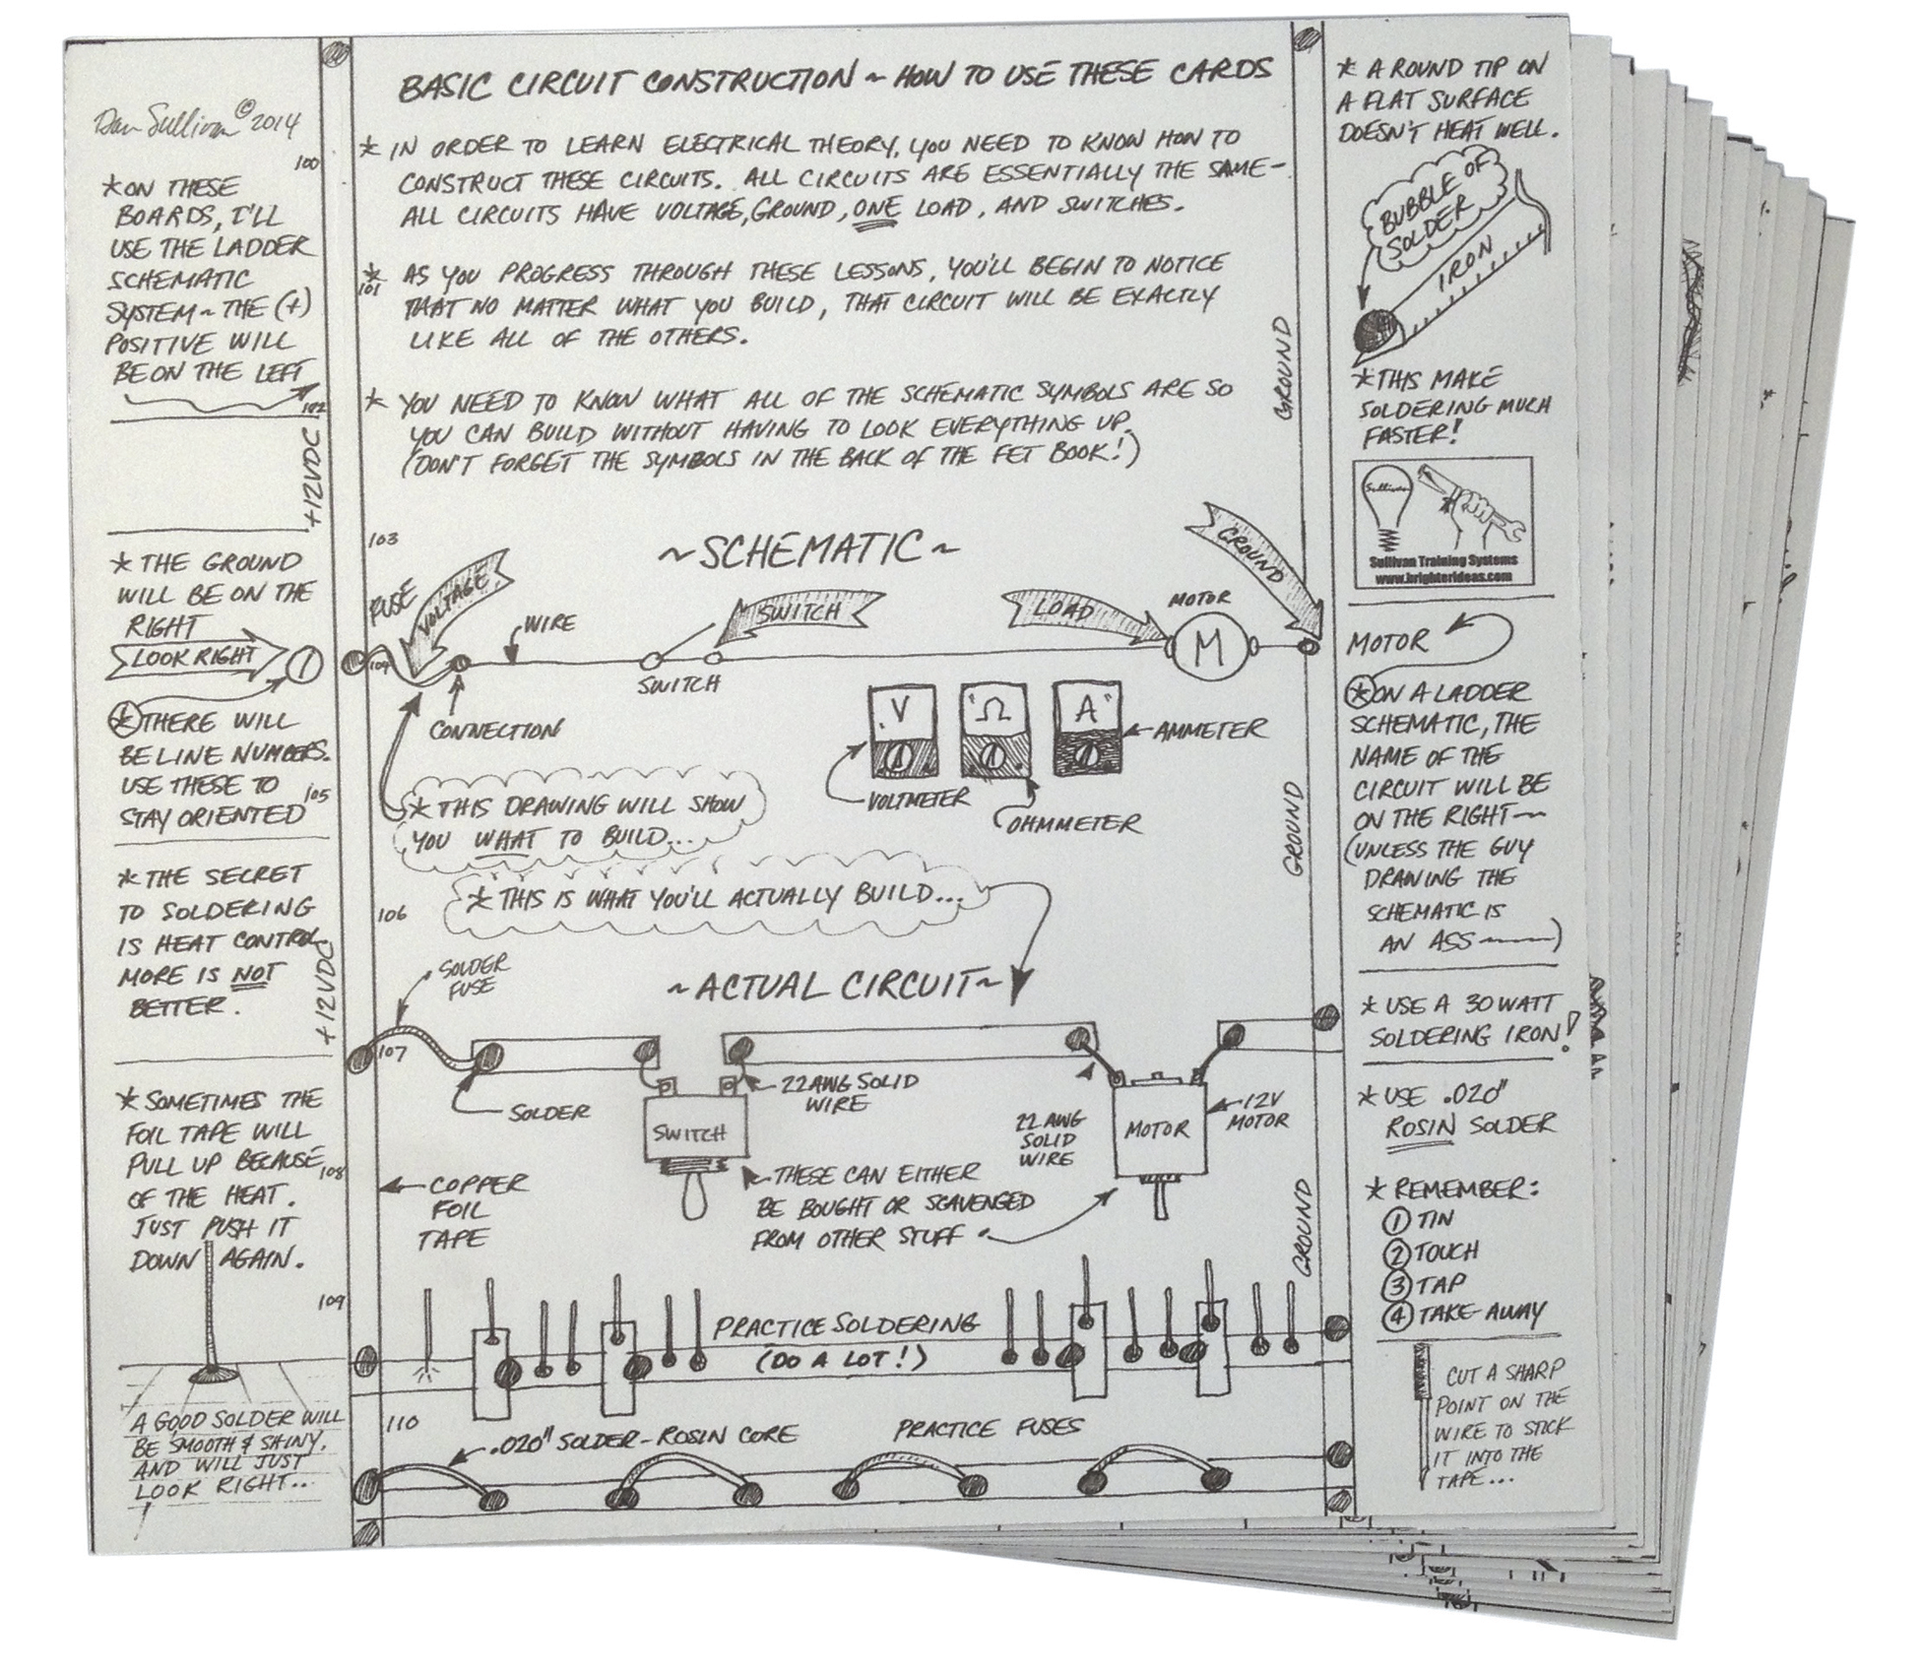 BASIC CIRCUIT CONSTRUCTION ~ HOW TO USE THESE CARDS
Dan Sullivan © 2014
100
* ON THESE
BOARDS, I'LL
USE THE LADDER
SCHEMATIC
SYSTEM ~ THE (+)
POSITIVE WILL
BE ON THE LEFT
102
+12VDC
* THE GROUND
WILL BE ON THE
RIGHT
LOOK RIGHT
1
* THERE WILL
BE LINE NUMBERS.
USE THESE TO
STAY ORIENTED
105
* THE SECRET
TO SOLDERING
IS HEAT CONTROL
MORE IS NOT
BETTER.
+12VDC
* SOMETIMES THE
FOIL TAPE WILL
PULL UP BECAUSE
OF THE HEAT.
JUST PUSH IT
DOWN AGAIN.
108
109
A GOOD SOLDER WILL
BE SMOOTH & SHINY,
AND WILL JUST
LOOK RIGHT...
* IN ORDER TO LEARN ELECTRICAL THEORY, YOU NEED TO KNOW HOW TO
CONSTRUCT THESE CIRCUITS. ALL CIRCUITS ARE ESSENTIALLY THE SAME-
ALL CIRCUITS HAVE VOLTAGE, GROUND, ONE LOAD, AND SWITCHES.
* AS YOU PROGRESS THROUGH THESE LESSONS, YOU'LL BEGIN TO NOTICE
101
THAT NO MATTER WHAT YOU BUILD, THAT CIRCUIT WILL BE EXACTLY
LIKE ALL OF THE OTHERS.
* YOU NEED TO KNOW WHAT ALL OF THE SCHEMATIC SYMBOLS ARE SO
YOU CAN BUILD WITHOUT HAVING TO LOOK EVERYTHING UP.
(DON'T FORGET THE SYMBOLS IN THE BACK OF THE FET BOOK!)
GROUND
103
~SCHEMATIC~
FUSE
VOLTAGE
WIRE
SWITCH
LOAD
MOTOR
GROUND
104
M
SWITCH
CONNECTION
V
Ω
A
AMMETER
VOLTMETER
OHMMETER
* THIS DRAWING WILL SHOW
YOU WHAT TO BUILD...
GROUND
* THIS IS WHAT YOU'LL ACTUALLY BUILD...
106
SOLDER
FUSE
~ACTUAL CIRCUIT~
107
SOLDER
22AWG SOLID
WIRE
SWITCH
22 AWG
SOLID
WIRE
MOTOR
12V
MOTOR
THESE CAN EITHER
BE BOUGHT OR SCAVENGED
FROM OTHER STUFF
COPPER
FOIL
TAPE
GROUND
PRACTICE SOLDERING
(DO A LOT!)
110
.020" SOLDER-ROSIN CORE
PRACTICE FUSES
* A ROUND TIP ON
A FLAT SURFACE
DOESN'T HEAT WELL.
BUBBLE OF
SOLDER
IRON
* THIS MAKE
SOLDERING MUCH
FASTER!
Sullivan
Sullivan Training Systems
www.brighterideas.com
MOTOR
* ON A LADDER
SCHEMATIC, THE
NAME OF THE
CIRCUIT WILL BE
ON THE RIGHT~
(UNLESS THE GUY
DRAWING THE
SCHEMATIC IS
AN ASS~)
* USE A 30 WATT
SOLDERING IRON!
* USE .020"
ROSIN SOLDER
* REMEMBER:
① TIN
② TOUCH
③ TAP
④ TAKE AWAY
CUT A SHARP
POINT ON THE
WIRE TO STICK
IT INTO THE
TAPE...